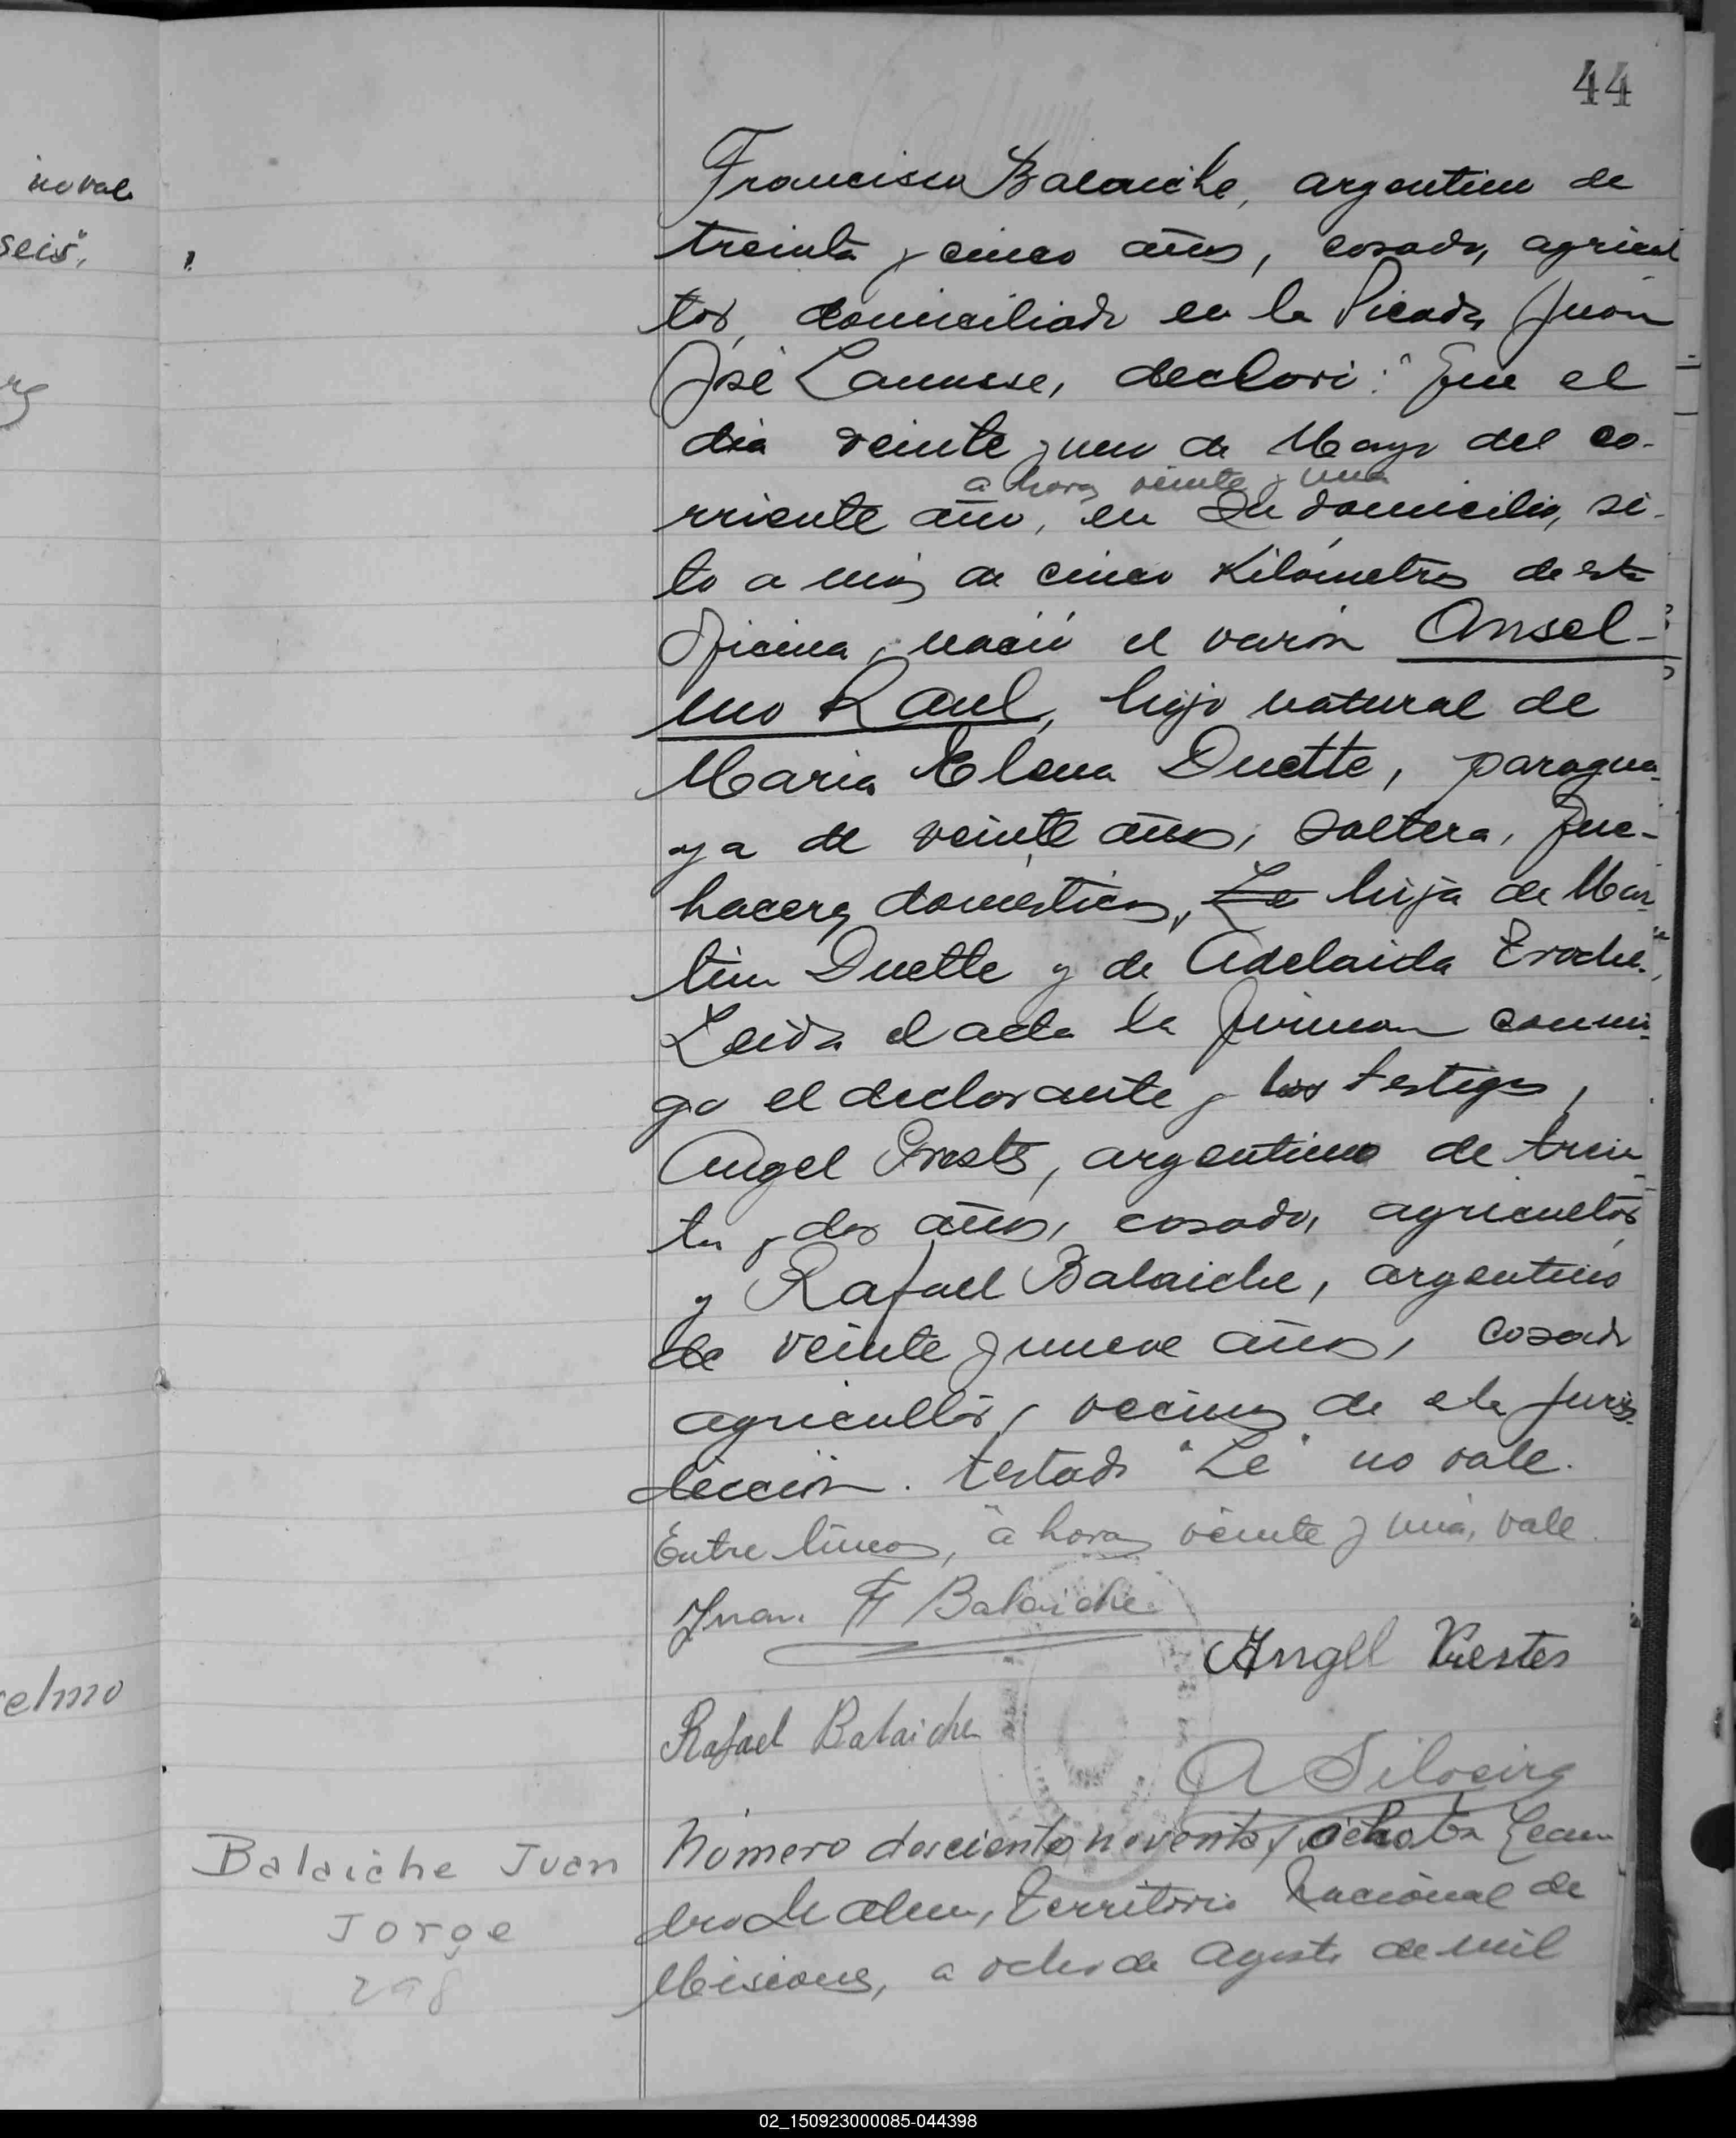 44
no vale
seis",
Francisco Balaiche, argentino de
treinta y cinco años, casado, agricul
tor, domiciliado en la Picada Juan
José Lanusse, declaró: "Que el
día veinte y uno de Mayo del co-
a horas veinte y una
rriente año, en su domicilio, si-
to a más de cinco Kilómetros de esta
Oficina, nació el varón Ansel-
mo Raul, hijo natural de
Maria Elena Duette, paragua-
ya de veinte años, soltera, que-
haceres domésticos, Le hija de Mar
tin Duette y de Adelaida Eroche",
Leida el acta la firman conmi-
go el declarante y los testigos,
Angel Prestes, argentino de trein-
ta y dos años, casado, agricultor
y Rafael Balaiche, argentino
de veinte y nueve años, casado
agricultor, vecinos de esta juris-
dicción. testado "Le" no vale.
Entre lineas, a horas veinte y una, vale.
Juan F Balaiche
Angel Prestes
Rafael Balaiche
A Silveira
elmo
Balaiche Juan
Jorge
298
Número doscientos noventa y ocho En Lean
dro N Alem, Territorio Nacional de
Misiones, a ocho de Agosto de mil
02_150923000085-044398